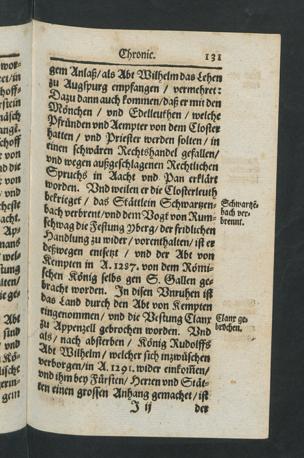 Chronic. 131
gem Anlaß/ als Abt Wilhelm das Lehen
zu Augspurg empfangen / vermehret:
Dazu dann auch kommen/ daß er mit den
Mönchen / und Edelleuthen / welche
Pfründen und Aempter von dem Closter
hatten / und Priester werden solten / in
einen schwären Rechtshandel gefallen/
und wegen außgeschlagenen Rechtlichen
Spruchs in Aacht und Pan erklärt
worden. Und weilen er die Closterleuth
bekrieget / das Stättlein Schwarzen-
bach verbrent/ und dem Vogt von Ram-
schwag die Festung Yberg/ der fridlichen
Handlung zu wider / vorenthalten/ ist er
deßwegen entsezt / und der Abt von
Kempten in A. 1287. von dem Römi-
schen König selbs gen S. Gallen ge-
bracht worden. In disen Unruhen ist
das Land durch den Abt von Kempten
eingenommen/ und die Vestung Clanx
zu Appenzell gebrochen worden. Und
als/ nach absterben / König Rudolffs
Abt Wilhelm/ welcher sich inzwüschen
verborgen/ in A. 1291. wider einkom̃en/
und ihm bey Fürsten/ Herren und Stät-
ten einen grossen Anhang gemachet/ ist
J ij der
Schwartzẽ-
bach ver-
brennt.
Clanx ge-
brochen.